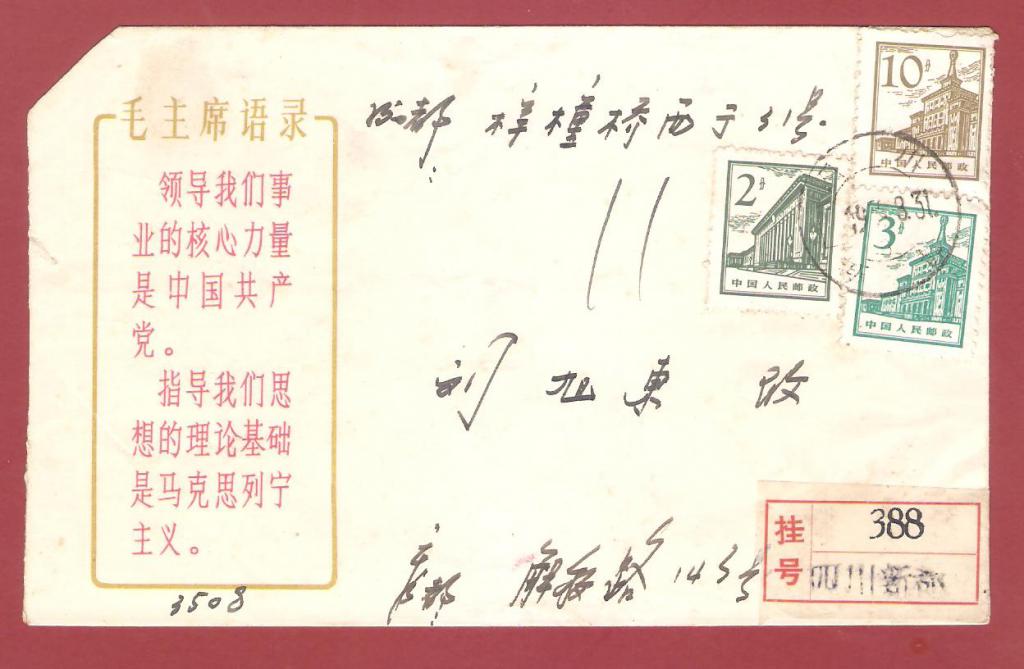 毛主席语录
领导我们事
业的核心力量
是中国共产
党。
指导我们思
想的理论基础
是马克思列宁
主义。
成都 梓橦桥西于31号.
10分
中国人民邮政
2分
中国人民邮政
3分
中国人民邮政
8.31
刘旭東
解放路 143号
挂号
388
四川新都
3508